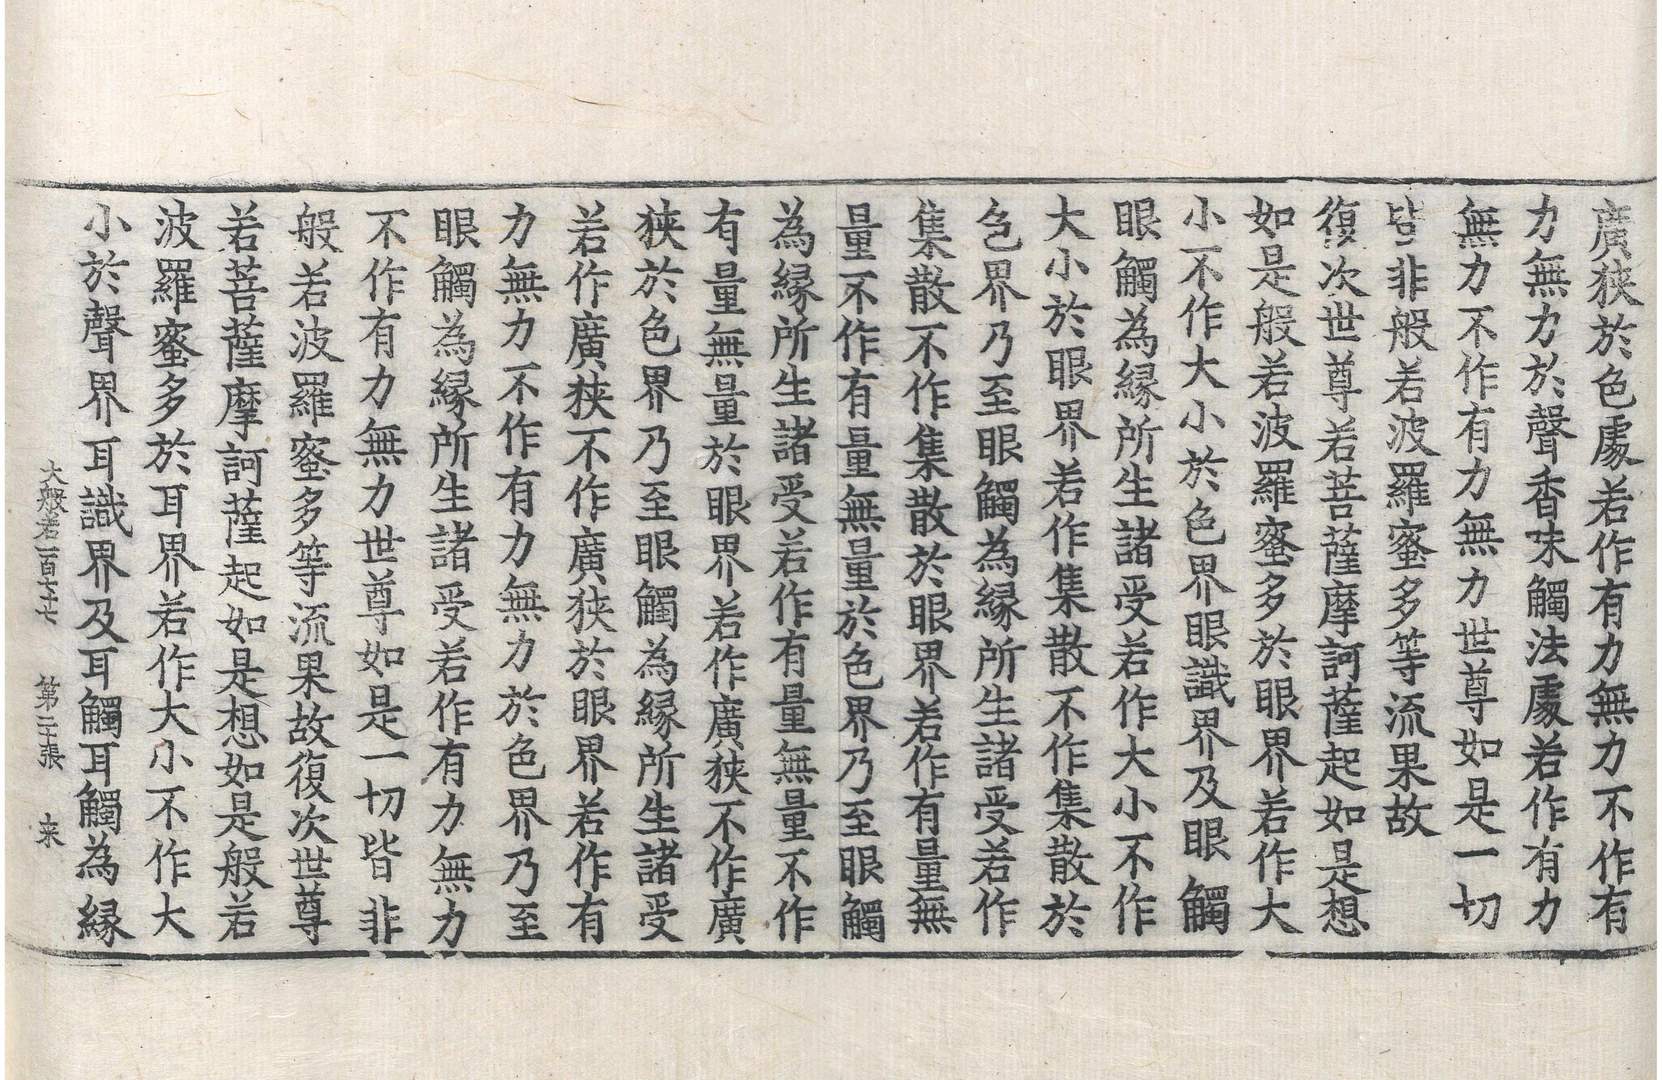 廣狹於色處若作有力無力不作有
力無力於聲香味觸法處若作有力
無力不作有力無力世尊如是一切
皆非般若波羅蜜多等流果故
復次世尊若菩薩摩訶薩起如是想
如是般若波羅蜜多於眼界若作大
小不作大小於色界眼識界及眼觸
眼觸為緣所生諸受若作大小不作
大小於眼界若作集散不作集散於
色界乃至眼觸為緣所生諸受若作
集散不作集散於眼界若作有量無
量不作有量無量於色界乃至眼觸
為緣所生諸受若作有量無量不作
有量無量於眼界若作廣狹不作廣
狹於色界乃至眼觸為緣所生諸受
若作廣狹不作廣狹於眼界若作有
力無力不作有力無力於色界乃至
眼觸為緣所生諸受若作有力無力
不作有力無力世尊如是一切皆非
般若波羅蜜多等流果故復次世尊
若菩薩摩訶薩起如是想如是般若
波羅蜜多於耳界若作大小不作大
小於聲界耳識界及耳觸耳觸為緣
大般若一百七十七 第二十張 來